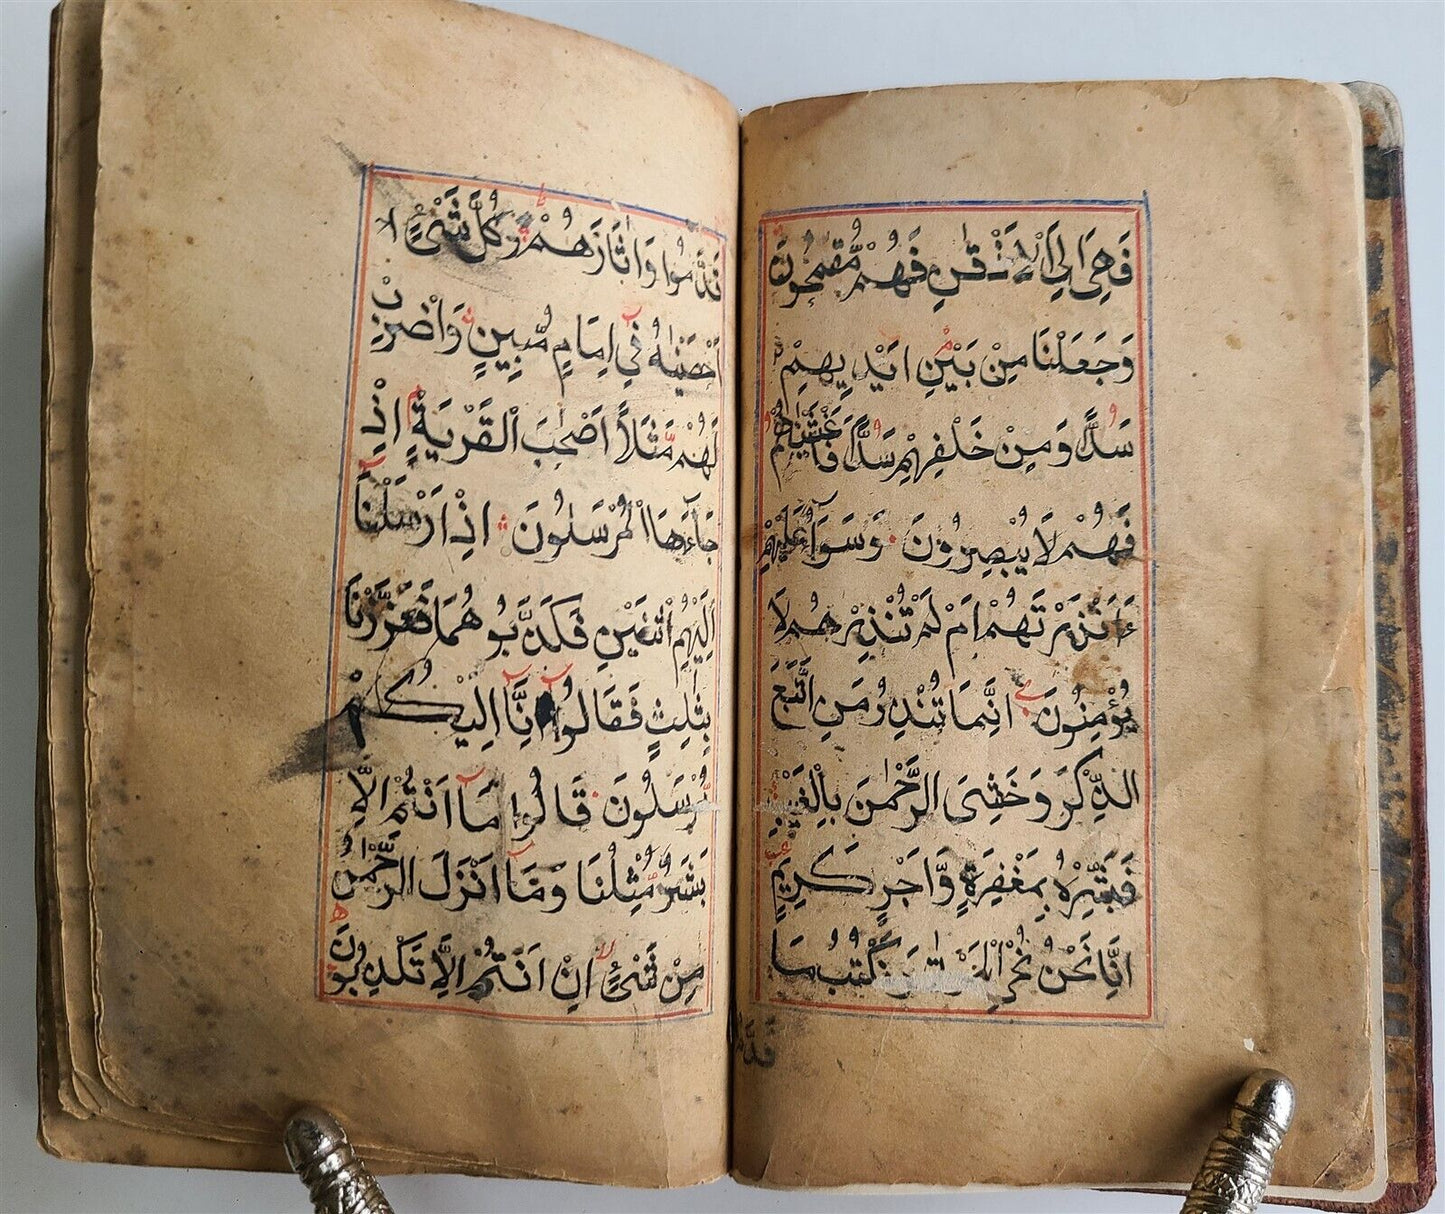 فَهِيَ اِلَى الْاَذْقَانِ فَهُمْ مُّقْمَحُوْنَ
وَجَعَلْنَا مِنْ بَيْنِ اَيْدِيْهِمْ
سَدًّا وَمِنْ خَلْفِهِمْ سَدًّا فَاَغْشَيْنٰهُمْ
فَهُمْ لَا يُبْصِرُوْنَ وَسَوَآءٌ عَلَيْهِمْ
ءَاَنْذَرْتَهُمْ اَمْ لَمْ تُنْذِرْهُمْ لَا
يُؤْمِنُوْنَ اِنَّمَا تُنْذِرُ مَنِ اتَّبَعَ
الذِّكْرَ وَخَشِىَ الرَّحْمٰنَ بِالْغَيْبِ
فَبَشِّرْهُ بِمَغْفِرَةٍ وَّاَجْرٍ كَرِيْمٍ
اِنَّا نَحْنُ نُحْيِ الْمَوْتٰى وَنَكْتُبُ مَا
قدموا
قَدَّمُوْا وَاٰثَارَهُمْ وَكُلَّ شَىْءٍ
اَحْصَيْنٰهُ فِيْ اِمَامٍ مُّبِيْنٍ وَاضْرِبْ
لَهُمْ مَّثَلًا اَصْحٰبَ الْقَرْيَةِ اِذْ
جَآءَهَا الْمُرْسَلُوْنَ اِذْ اَرْسَلْنَا
اِلَيْهِمُ اثْنَيْنِ فَكَذَّبُوْهُمَا فَعَزَّزْنَا
بِثَالِثٍ فَقَالُوْا اِنَّا اِلَيْكُمْ
مُّرْسَلُوْنَ قَالُوْا مَآ اَنْتُمْ اِلَّا
بَشَرٌ مِّثْلُنَا وَمَآ اَنْزَلَ الرَّحْمٰنُ
مِنْ شَىْءٍ اِنْ اَنْتُمْ اِلَّا تَكْذِبُوْنَ